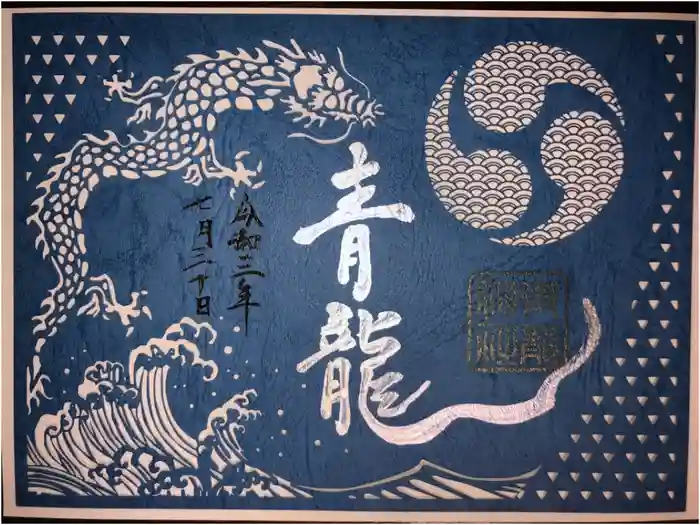 青龍
令和三年
七月二十日